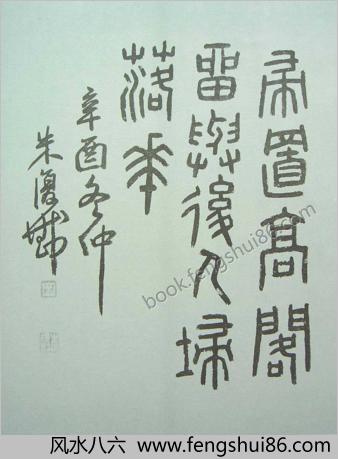 帚置高閣
留與後人埽
落花
辛酉冬仲
朱復戡
book.fengshui86.com
风水八六 www.fengshui86.com